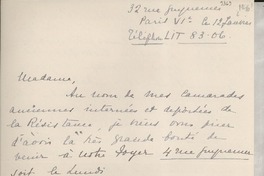 32 rue Guynemer
Paris VIe le 12 Janvier
Télépho LIT 83-06.
Madame,
Au nom de mes camarades
anciennes internées et déportées de
la Résistance, je viens vous prier
d'avoir la très grande bonté de
venir à notre Foyer 4 rue Guynemer
soit le lundi